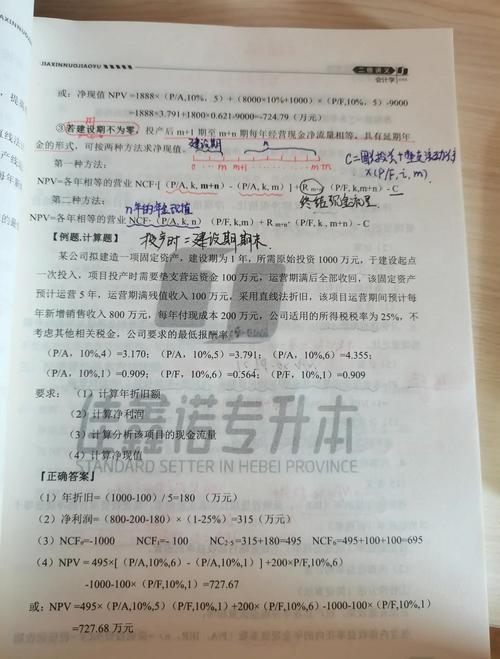 JIAXINNUOJIAOYU
二信讲义
会计学
或：净现值 NPV =1888×（P/A,10%，5）+（8000×10%+1000）×（P/F,10%，5）-9000
=1888×3.791+1800×0.621-9000=-724.79（万元）
③若建设期不为零，投产后 m+1 期至 m+n 期每年经营现金净流量相等，具有延期年
金的形式，可按两种方法求净现值。
建设期
n
0 m m+1 m+n
第一种方法：
NPV=各年相等的营业 NCF·[（P/A, k, m+n）-（P/A, k, m）]+R m+n·（P/F, k,m+n）- C
×(P/F,i,m)
终结现金流量
第二种方法：
n年的年金现值
NPV=各年相等的营业 NCF·（P/A, k, n）（P/F, k,m）+ R m+n·（P/F, k,m+n）- C
【例题.计算题】
投产时=建设期期末
某公司拟建造一项固定资产，建设期为 1 年，所需原始投资 1000 万元，于建设起点
一次投入，项目投产时需要垫支营运资金 100 万元，运营期满后全部收回，该固定资产
预计运营 5 年，运营期满残值收入 100 万元，采用直线法折旧，该项目运营期间预计每
年新增销售收入 800 万元，每年付现成本 200 万元，公司适用的所得税税率为 25%，不
考虑其他相关税金，公司要求的最低报酬率
（P/A，10%,4）=3.170;（P/A，10%,5）=3.791;（P/A，10%,6）=4.355;
（P/A，10%,1）=0.909;（P/F，10%,6）=0.564;（P/F，10%,1）=0.909
要求：（1）计算年折旧额
（2）计算净利润
（3）计算分析该项目的现金流量
（4）计算净现值
佳鑫诺专升本
STANDARD SETTER IN HEBEI PROVINCE
【正确答案】
（1）年折旧=（1000-100）/ 5=180 （万元）
（2）净利润=（800-200-180）×（1-25%）=315(万元)
（3）NCF₀=-1000 NCF₁=- 100 NC₂₋₅=315+180=495 NCF₆=495+100+100=695
（4）NPV = 495×[（P/A,10%,6）-（P/A,10%,1）] +200×P/F,10%,6)
-1000-100×（P/F,10%,1）=727.67
或：NPV =495×（P/A,10%,5）（P/F,10%,1）+200×（P/F,10%,6）-1000-100×（P/F,10%,1）
=727.68 万元